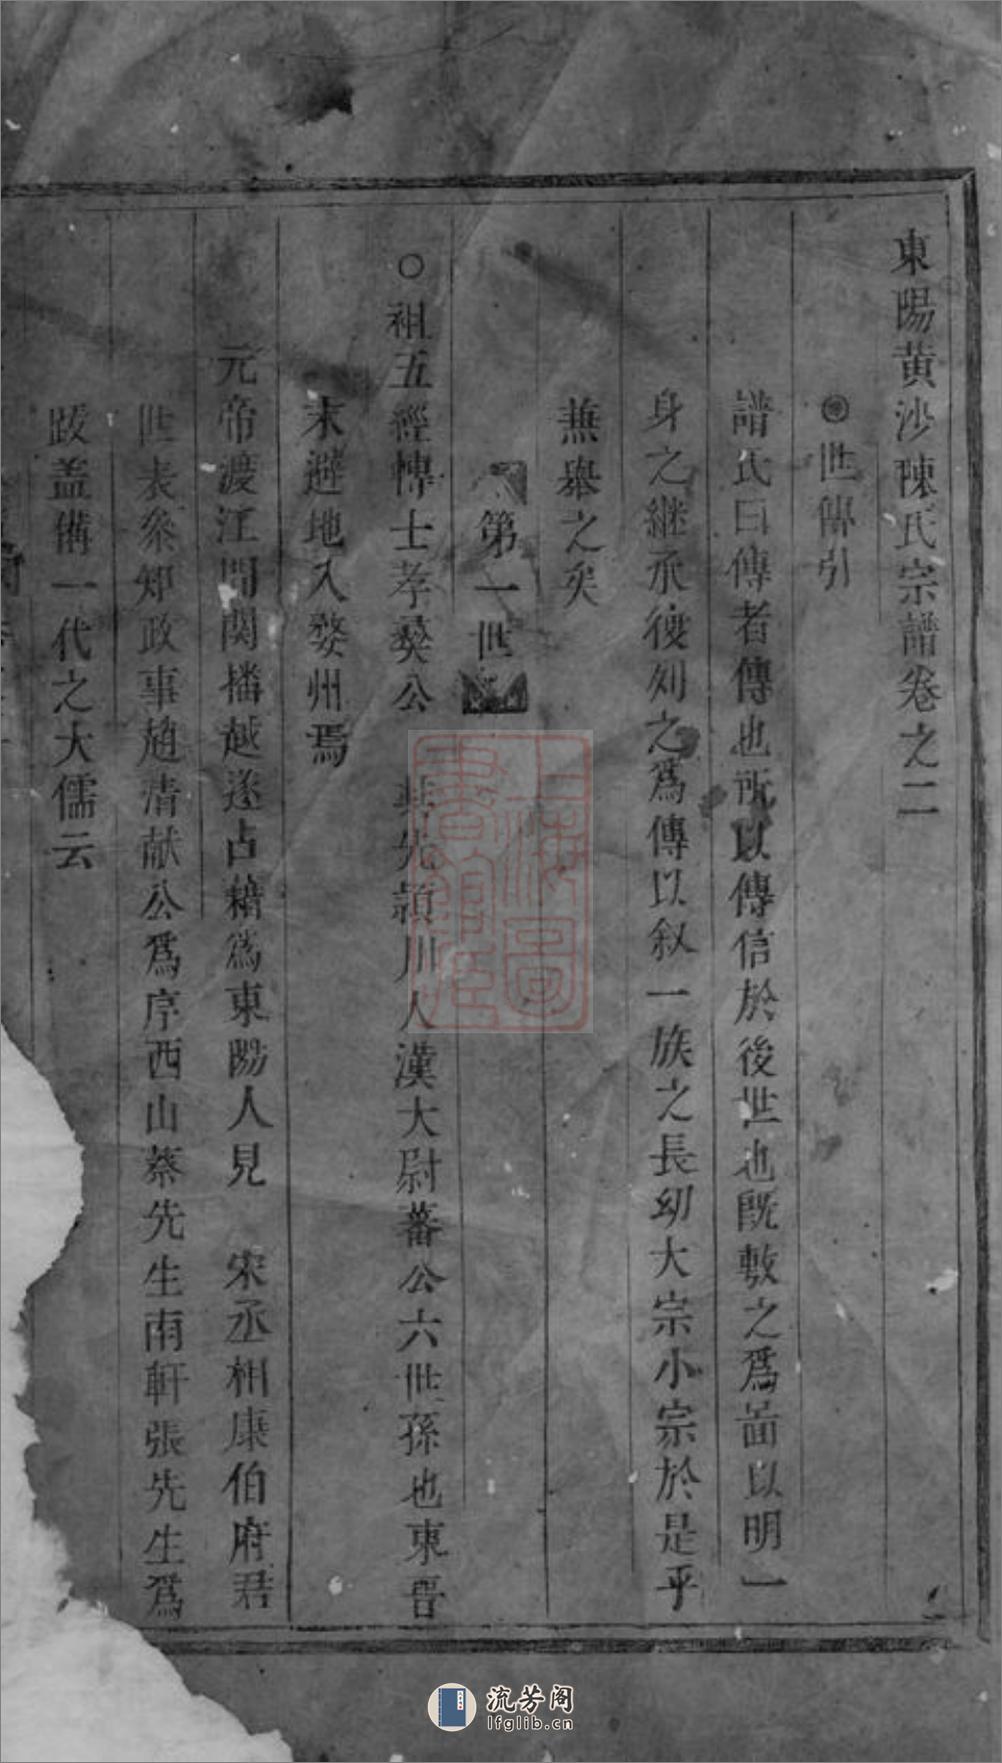 東陽黃沙陳氏宗譜卷之二
◉世傳引
譜氏曰傳者傳也所以傳信於後世也旣敷之爲啚以明一
身之継承復列之爲傳以敘一族之長幼大宗小宗於是乎
無舉之矣
第一世
○祖五經博士孝羙公 其先潁川人漢大尉蕃公六世孫也東晉
末避地入婺州焉
元帝渡江間関播越遂占藉爲東陽人見 宋丞相康伯府君
世表叅知政事趙清献公爲序西山蔡先生南軒張先生爲
跋盖備一代之大儒云
上海圖書館藏
流芳阁
lfglib.cn